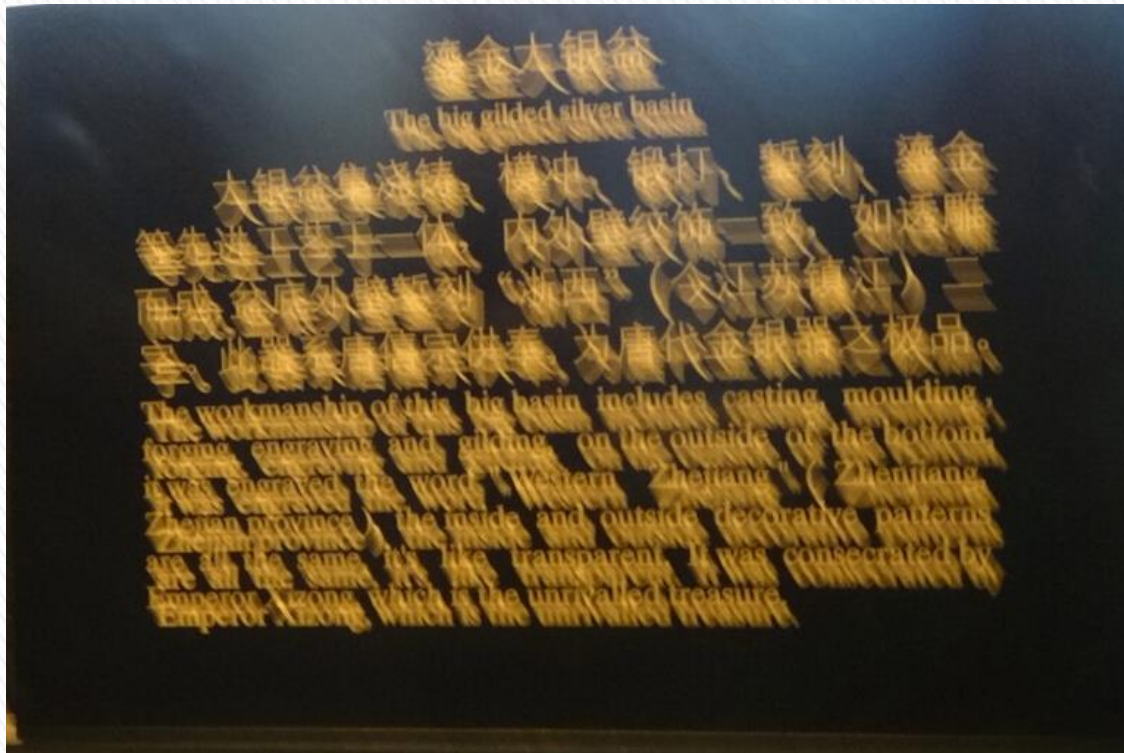 鎏金大银盆
The big gilded silver basin
大银盆集浇铸、模冲、锻打、錾刻、鎏金
等先进工艺于一体，内外壁纹饰一致，如透雕
而成，盆底外壁錾刻“浙西”（今江苏镇江）二
字。此器系唐僖宗供奉，为唐代金银器之极品。
The workmanship of this big basin includes casting, moulding,
forging, engraving and gilding, on the outside of the bottom,
it was engraved the word "Western Zhejiang" ( Zhenjiang,
province ), the inside and outside decorative patterns
are all the same, it's like transparent. It was consecrated by
Emperor Xizong, which is the unrivalled treasure.